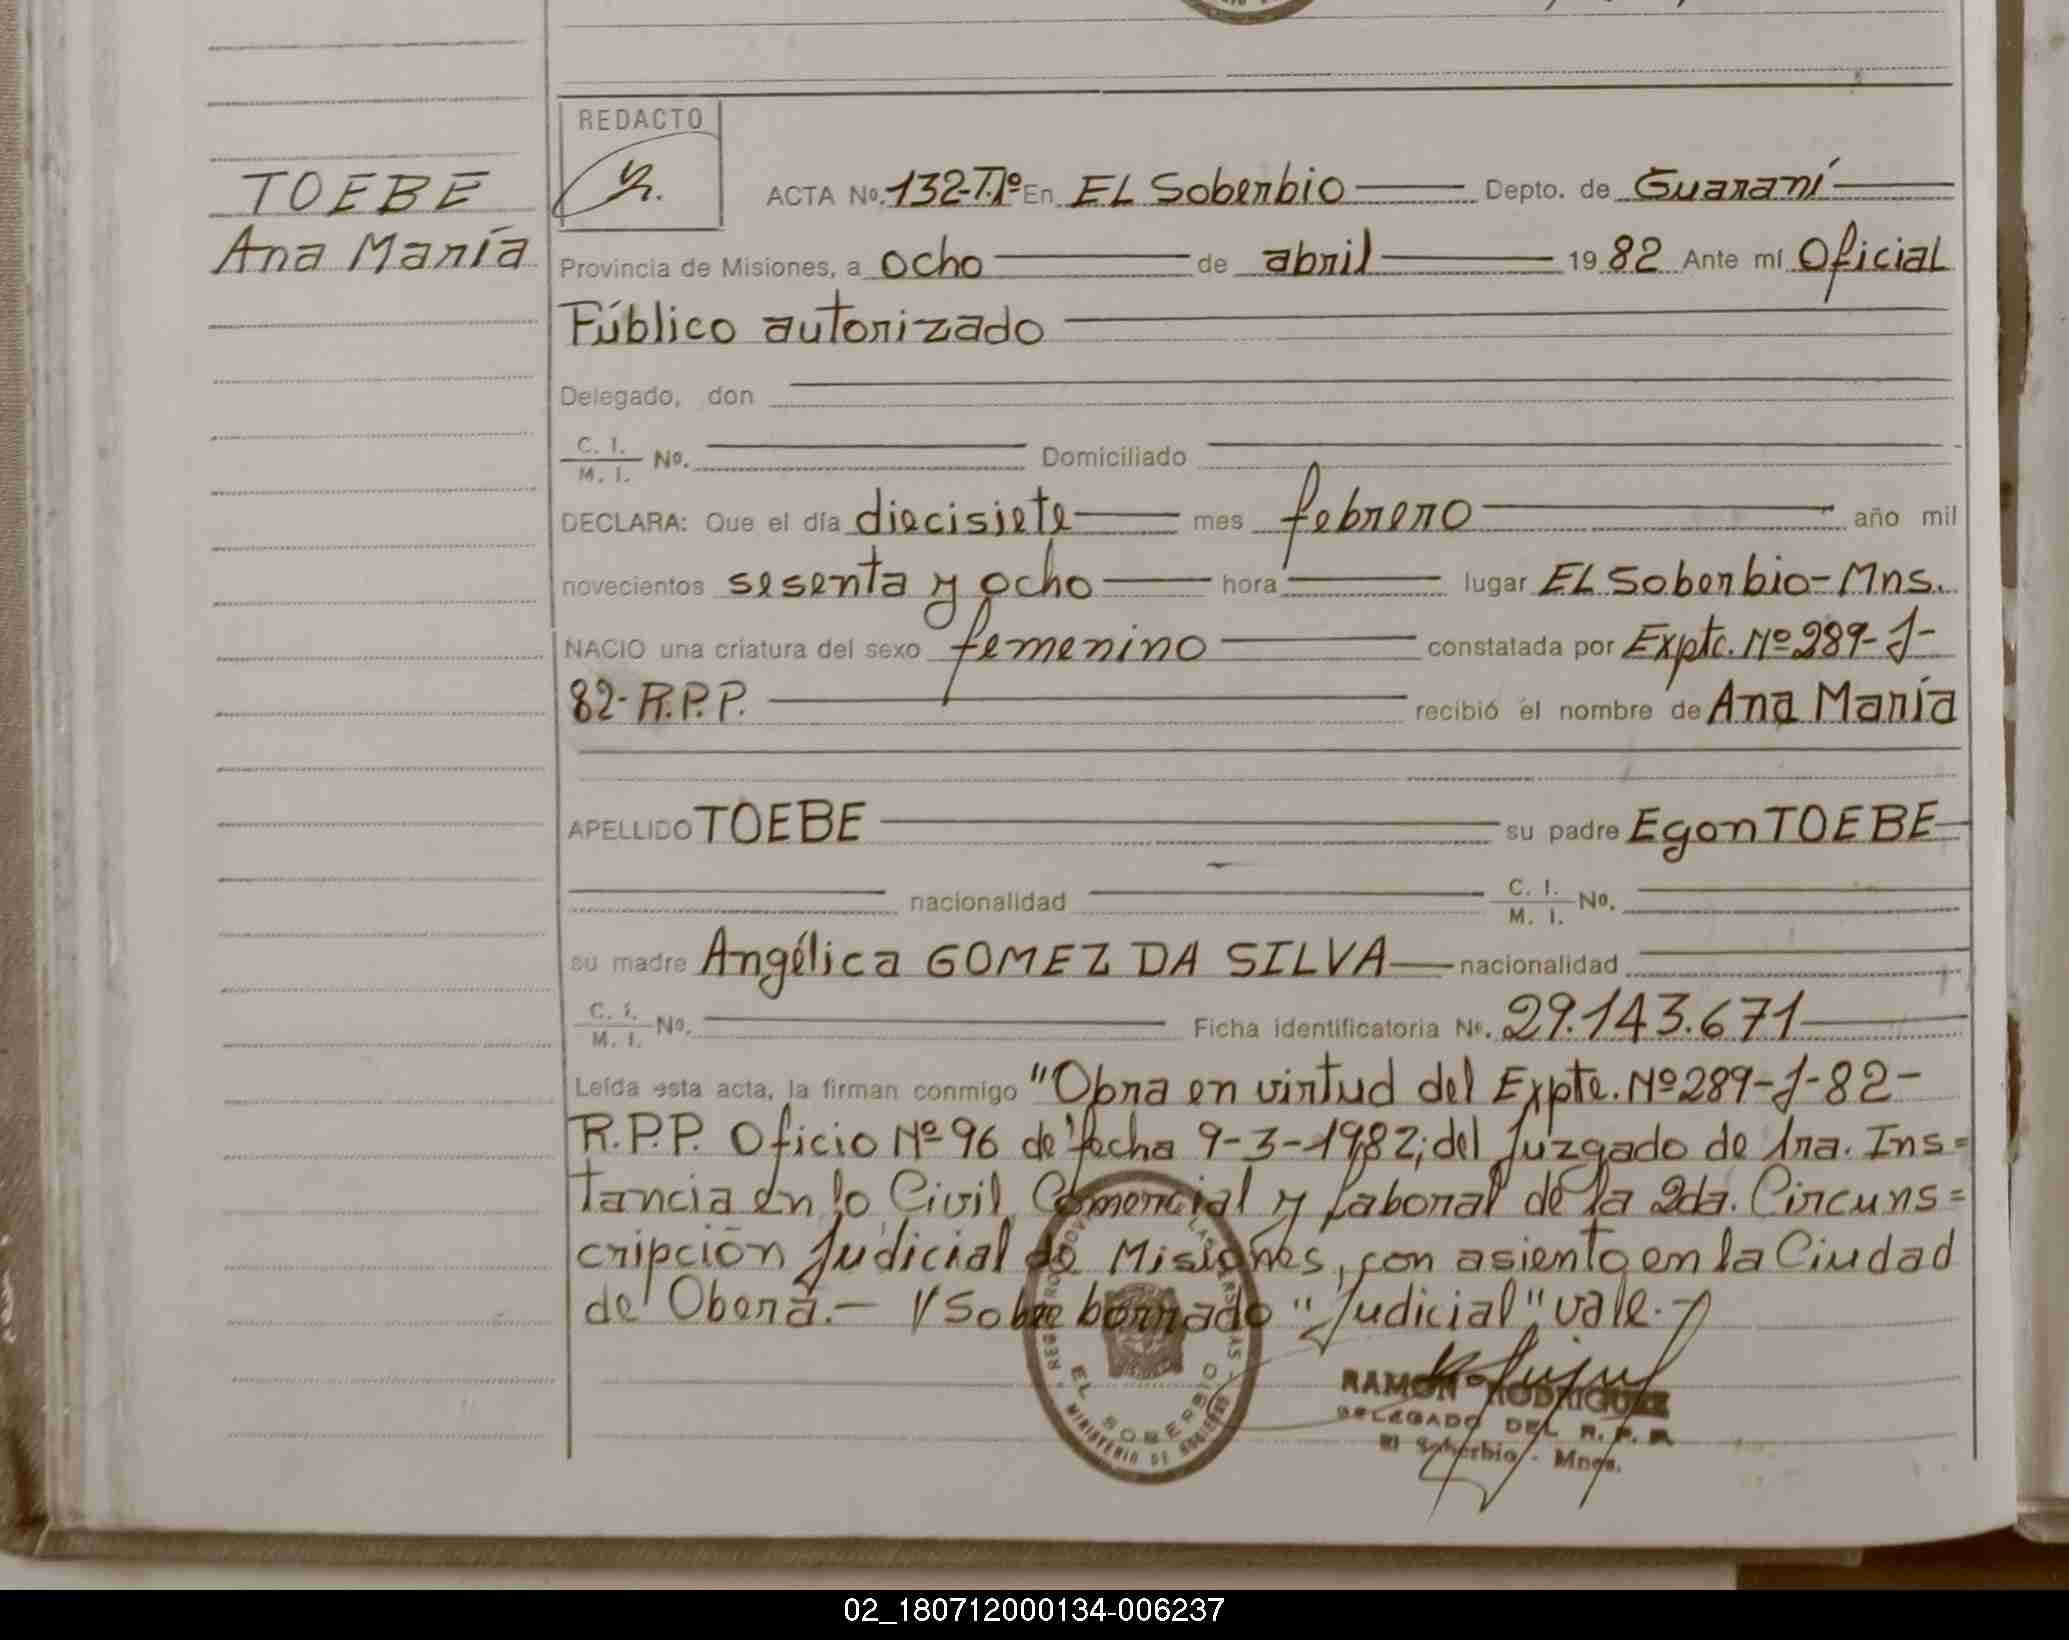 TOEBE
Ana María
REDACTO
ACTA No. 132-T.1º En EL Soberbio Depto. de Guaraní
Provincia de Misiones, a ocho de abril 1982 Ante mí Oficial
Público autorizado
Delegado, don
C. I. / M. I. No. Domiciliado
DECLARA: Que el día diecisiete mes febrero año mil
novecientos sesenta y ocho hora lugar EL Soberbio-Mns.
NACIO una criatura del sexo femenino constatada por Expte. Nº 289-J-
82-R.P.P. recibió el nombre de Ana María
APELLIDO TOEBE su padre Egon TOEBE
nacionalidad C. I. / M. I. No.
su madre Angélica GOMEZ DA SILVA nacionalidad
C. I. / M. I. No. Ficha identificatoria No. 29.143.671
Leída esta acta, la firman conmigo "Obra en virtud del Expte. Nº 289-J-82-
R.P.P. Oficio Nº 96 de fecha 9-3-1982; del Juzgado de 1ra. Ins=
tancia en lo Civil Comercial y Laboral de la 2da. Circuns=
cripción Judicial de Misiones, con asiento en la Ciudad
de Oberá.- Sobre borrado "Judicial" vale.-
EL SOBERBIO
MINISTERIO DE GOBIERNO
RAMON RODRIGUEZ
DELEGADO DEL R. P. P.
El Soberbio - Mnes.
02_180712000134-006237